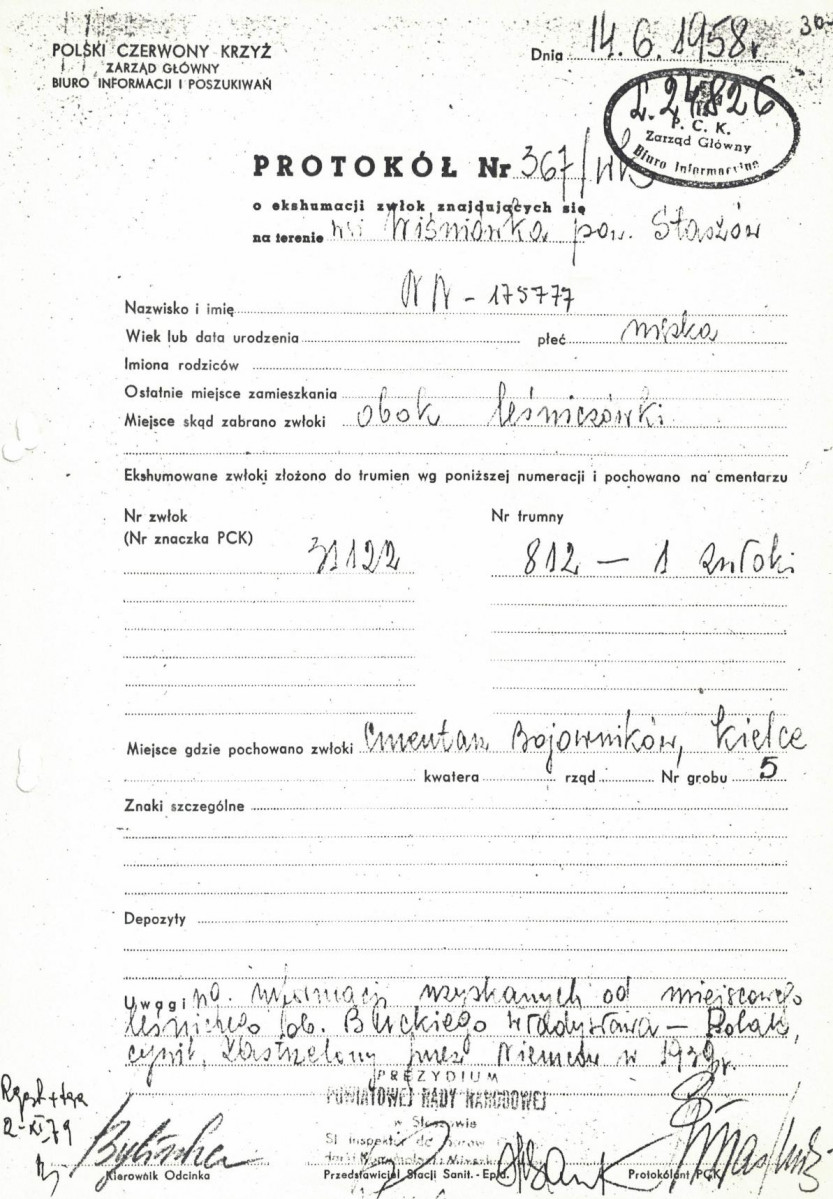 30
POLSKI CZERWONY KRZYŻ
ZARZĄD GŁÓWNY
BIURO INFORMACJI I POSZUKIWAŃ
Dnia 14.6.1958r
L.24826
P. C. K.
Zarząd Główny
Biuro Informacyjne
PROTOKÓŁ Nr 367/
o ekshumacji zwłok znajdujących się
na terenie wsi Wiśniówka pow. Staszów
Nazwisko i imię NN - 175777
Wiek lub data urodzenia płeć męska
Imiona rodziców
Ostatnie miejsce zamieszkania
Miejsce skąd zabrano zwłoki obok leśniczówki
Ekshumowane zwłoki złożono do trumien wg poniższej numeracji i pochowano na cmentarzu
Nr zwłok Nr trumny
(Nr znaczka PCK)
31122 812 — 1 zwłoki
Miejsce gdzie pochowano zwłoki Cmentarz Bojowników, Kielce
kwatera rząd Nr grobu 5
Znaki szczególne
Depozyty
Uwagi wg. informacji uzyskanych od miejscowego
leśniczego ob. Władysława — Polak,
cywil, zastrzelony przez Niemców w 1939r.
PREZYDIUM
POWIATOWEJ RADY NARODOWEJ
w Staszowie
2-XI-79
Kierownik Odcinka Przedstawiciel Stacji Sanit.-Epid. Protokólant PCK